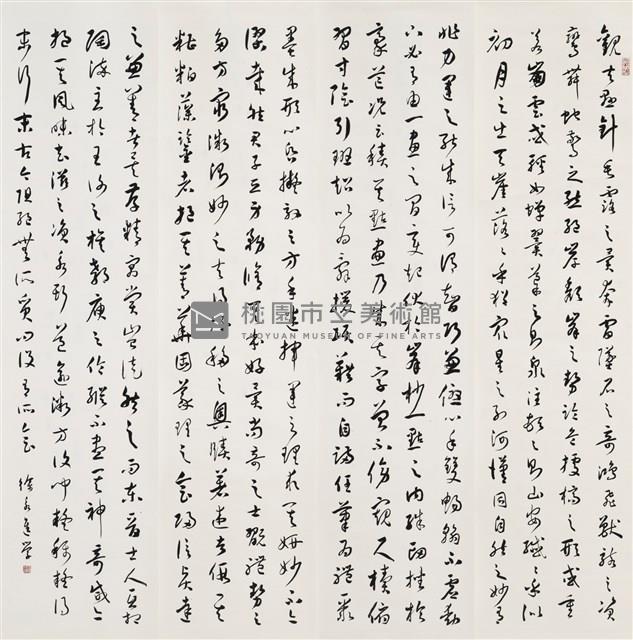 觀夫懸針垂露之異奔雷墜石之奇鴻飛獸駭之資
鸞舞蛇驚之態絕岸頹峯之勢臨危據槁之形或重
若崩雲或輕如蟬翼導之則泉注頓之則山安纖纖乎似
初月之出天崖落落乎猶眾星之列河漢同自然之妙有
非力運之能成信可謂智巧兼優心手雙暢翰不虛動
下必有由一畫之間變起伏於峯杪一點之內殊衄挫於
豪芒況云積其點畫乃成其字曾不傍窺尺櫝俯
習寸陰引班超以為辭援項籍而自滿任筆為體聚
墨成形心昏擬效之方手迷揮運之理求其妍妙不亦
謬哉然君子立身務修其本好異尚奇之士翫體勢之
多方窮微測妙之夫得推移之奧賾著述者假其
糟粕藻鑒者挹其菁華固義理之會歸信賢達
之兼善者矣存精寓賞豈徒然與而東晉士人互相
陶淬至於王謝之族郗庾之倫縱不盡其神奇咸亦
挹其風味去之滋永斯道逾微方復聞疑稱疑得
末行末古今阻絕無所質問設有所會 徐永進草
桃園市立美術館
TAOYUAN MUSEUM OF FINE ARTS